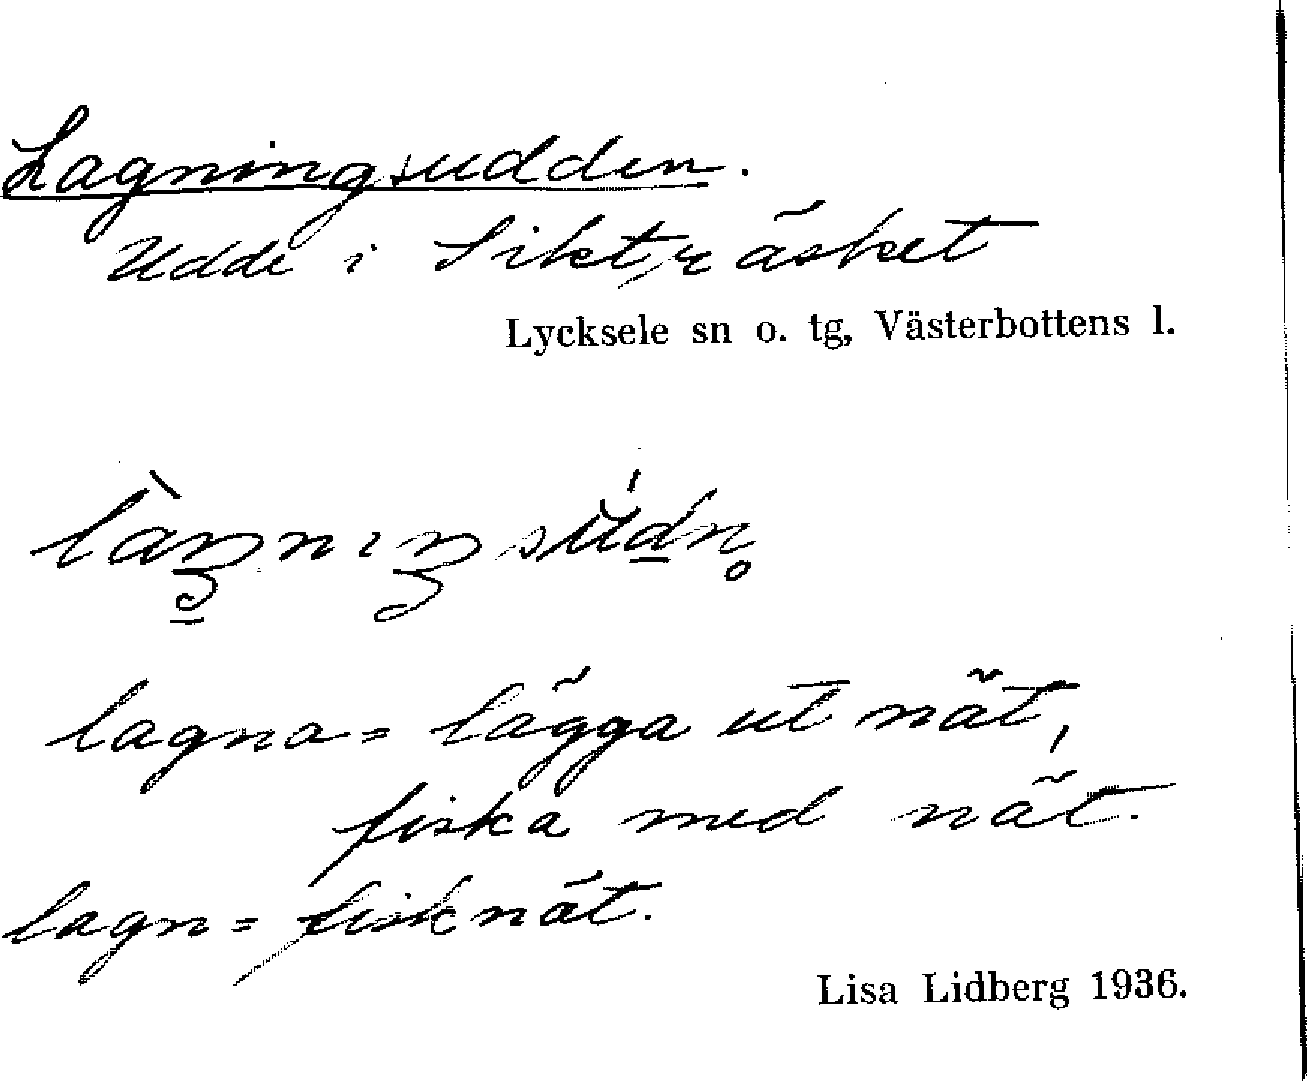 Lagningsudden.
Udde i Sikträsket
Lycksele sn o. tg, Västerbottens l.
lagna = lägga ut nät,
fiska med nät.
lagn = fisknät.
Lisa Lidberg 1936.